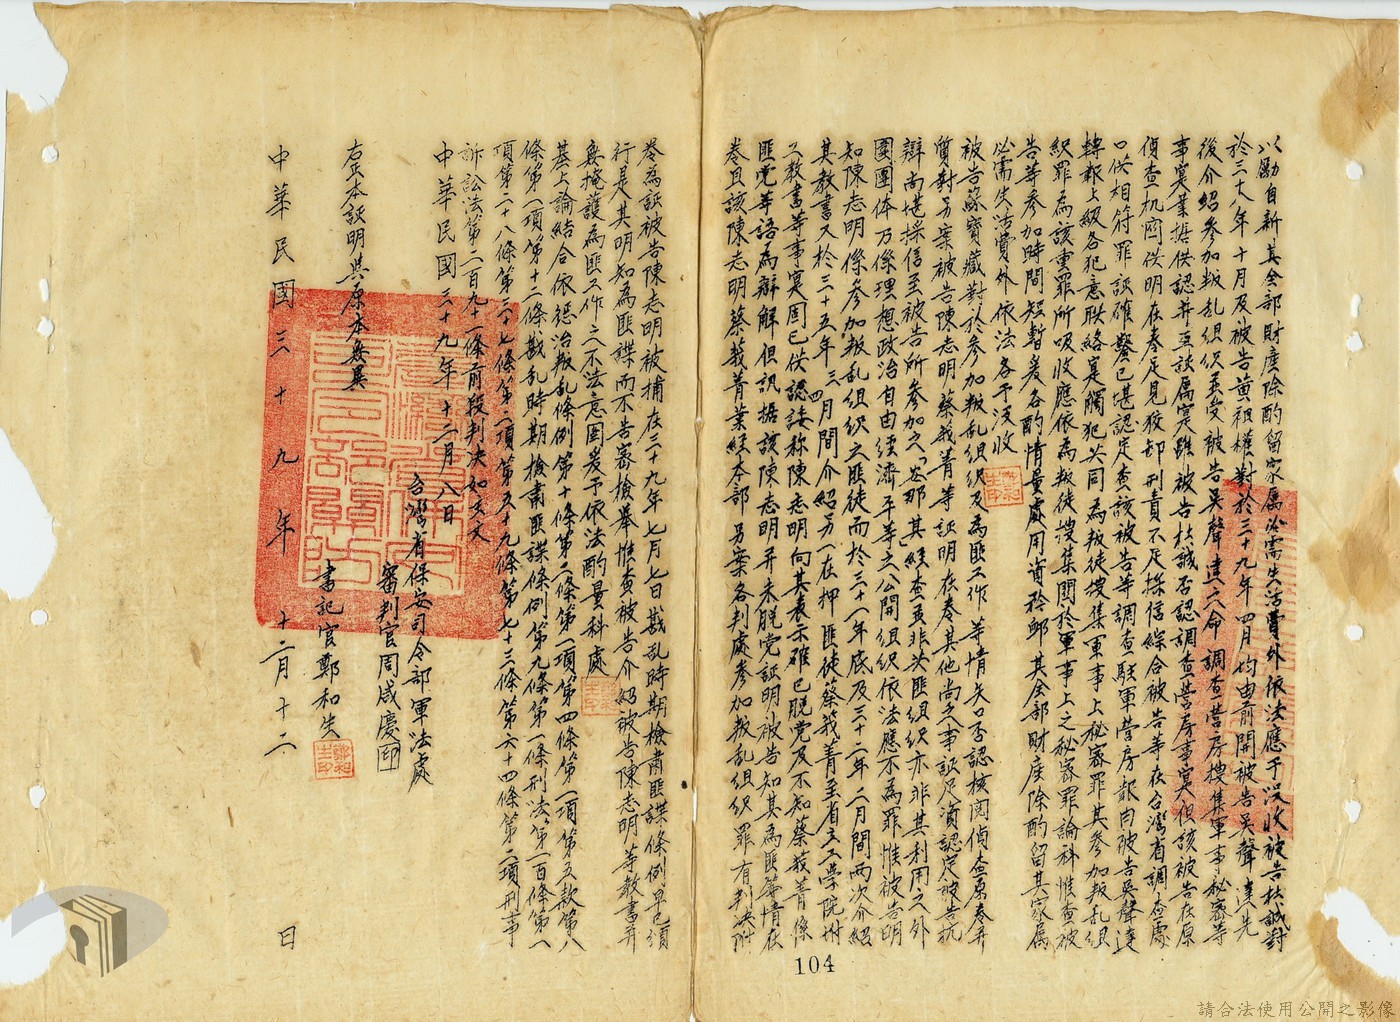 以勵自新其全部財產除酌留家屬必需生活費外依法應予沒收被告杜誠對
於三十八年十月及被告黃祖權對於三十九年四月均由前開被告吳聲達先
後介紹參加叛乱組织並受被告吳聲達之命調查营房搜集軍事秘密等
事實業據供認并互談屬实雖被告杜誠否認調查营房事實但該被告在原
偵查机関供明在卷足見狡卸刑責不足採信綜合被告等在台灣省調查處
口供相符罪証確鑿已堪認定查該被告等調查駐軍营房報由被告吳聲達
轉報上級各犯意联絡实觸犯共同為叛徒搜集軍事上秘密罪其參加叛乱組
織罪為該重罪所吸收應依為叛徒搜集関於軍事上之秘密罪論科惟查被
告等參加時間短暫爰各酌情量處用資矜卹其全部財產除酌留其家屬
必需生活費外依法各予沒收
被告蘇寶藏對於參加叛乱組织及為匪工作等情矢口否認核閱偵查原卷并
質對另案被告陳志明蔡莪菁等証明在卷其他尚乏事証足資認定被告抗
辯尚堪採信至被告所參加之「岂那其」經查並非共匪組織亦非其利用之外
圍團体乃係理想政治自由经濟平等之公開組织依法應不為罪惟被告明
知陳志明係參加叛乱組织之匪徒而於三十一年底及三十二年二月間兩次介紹
其教書又於三十五年三四月間介紹另一在押匪徒蔡莪菁至省立工學院附
工教書等事实固已供認諉称陳志明向其表示確已脱党及不知蔡莪菁係
匪党等語為辯解但訊据該陳志明并未脱党証明被告知其為匪等情在
卷且該陳志明蔡莪菁業经本部另案各判處參加叛乱組织罪有判决附
卷為証被告陳志明被捕在三十九年七月七日戡乱時期檢肅匪諜條例早已頒
行是其明知為匪諜而不告密檢舉惟查被告介紹被告陳志明等教書并
無掩護為匪工作之不法意圖爰予依法酌量科處
基上論結合依惩治叛乱條例第十條第二條第一項第四條第一項第五款第八
條第一項第十二條戡乱時期檢肅匪諜條例第九條第一條刑法第一百條第一
項第二十八條第三十七條第二項第五十九條第七十三條第六十四條第二項刑事
訴訟法第二百九十一條前段判决如主文
中華民國三十九年十二月八日
台灣省保安司令部軍法處
審判官周咸慶印
右正本証明與原本無異
書記官鄭和生
中華民國三十九年十二月十二日
104
請合法使用公開之影像